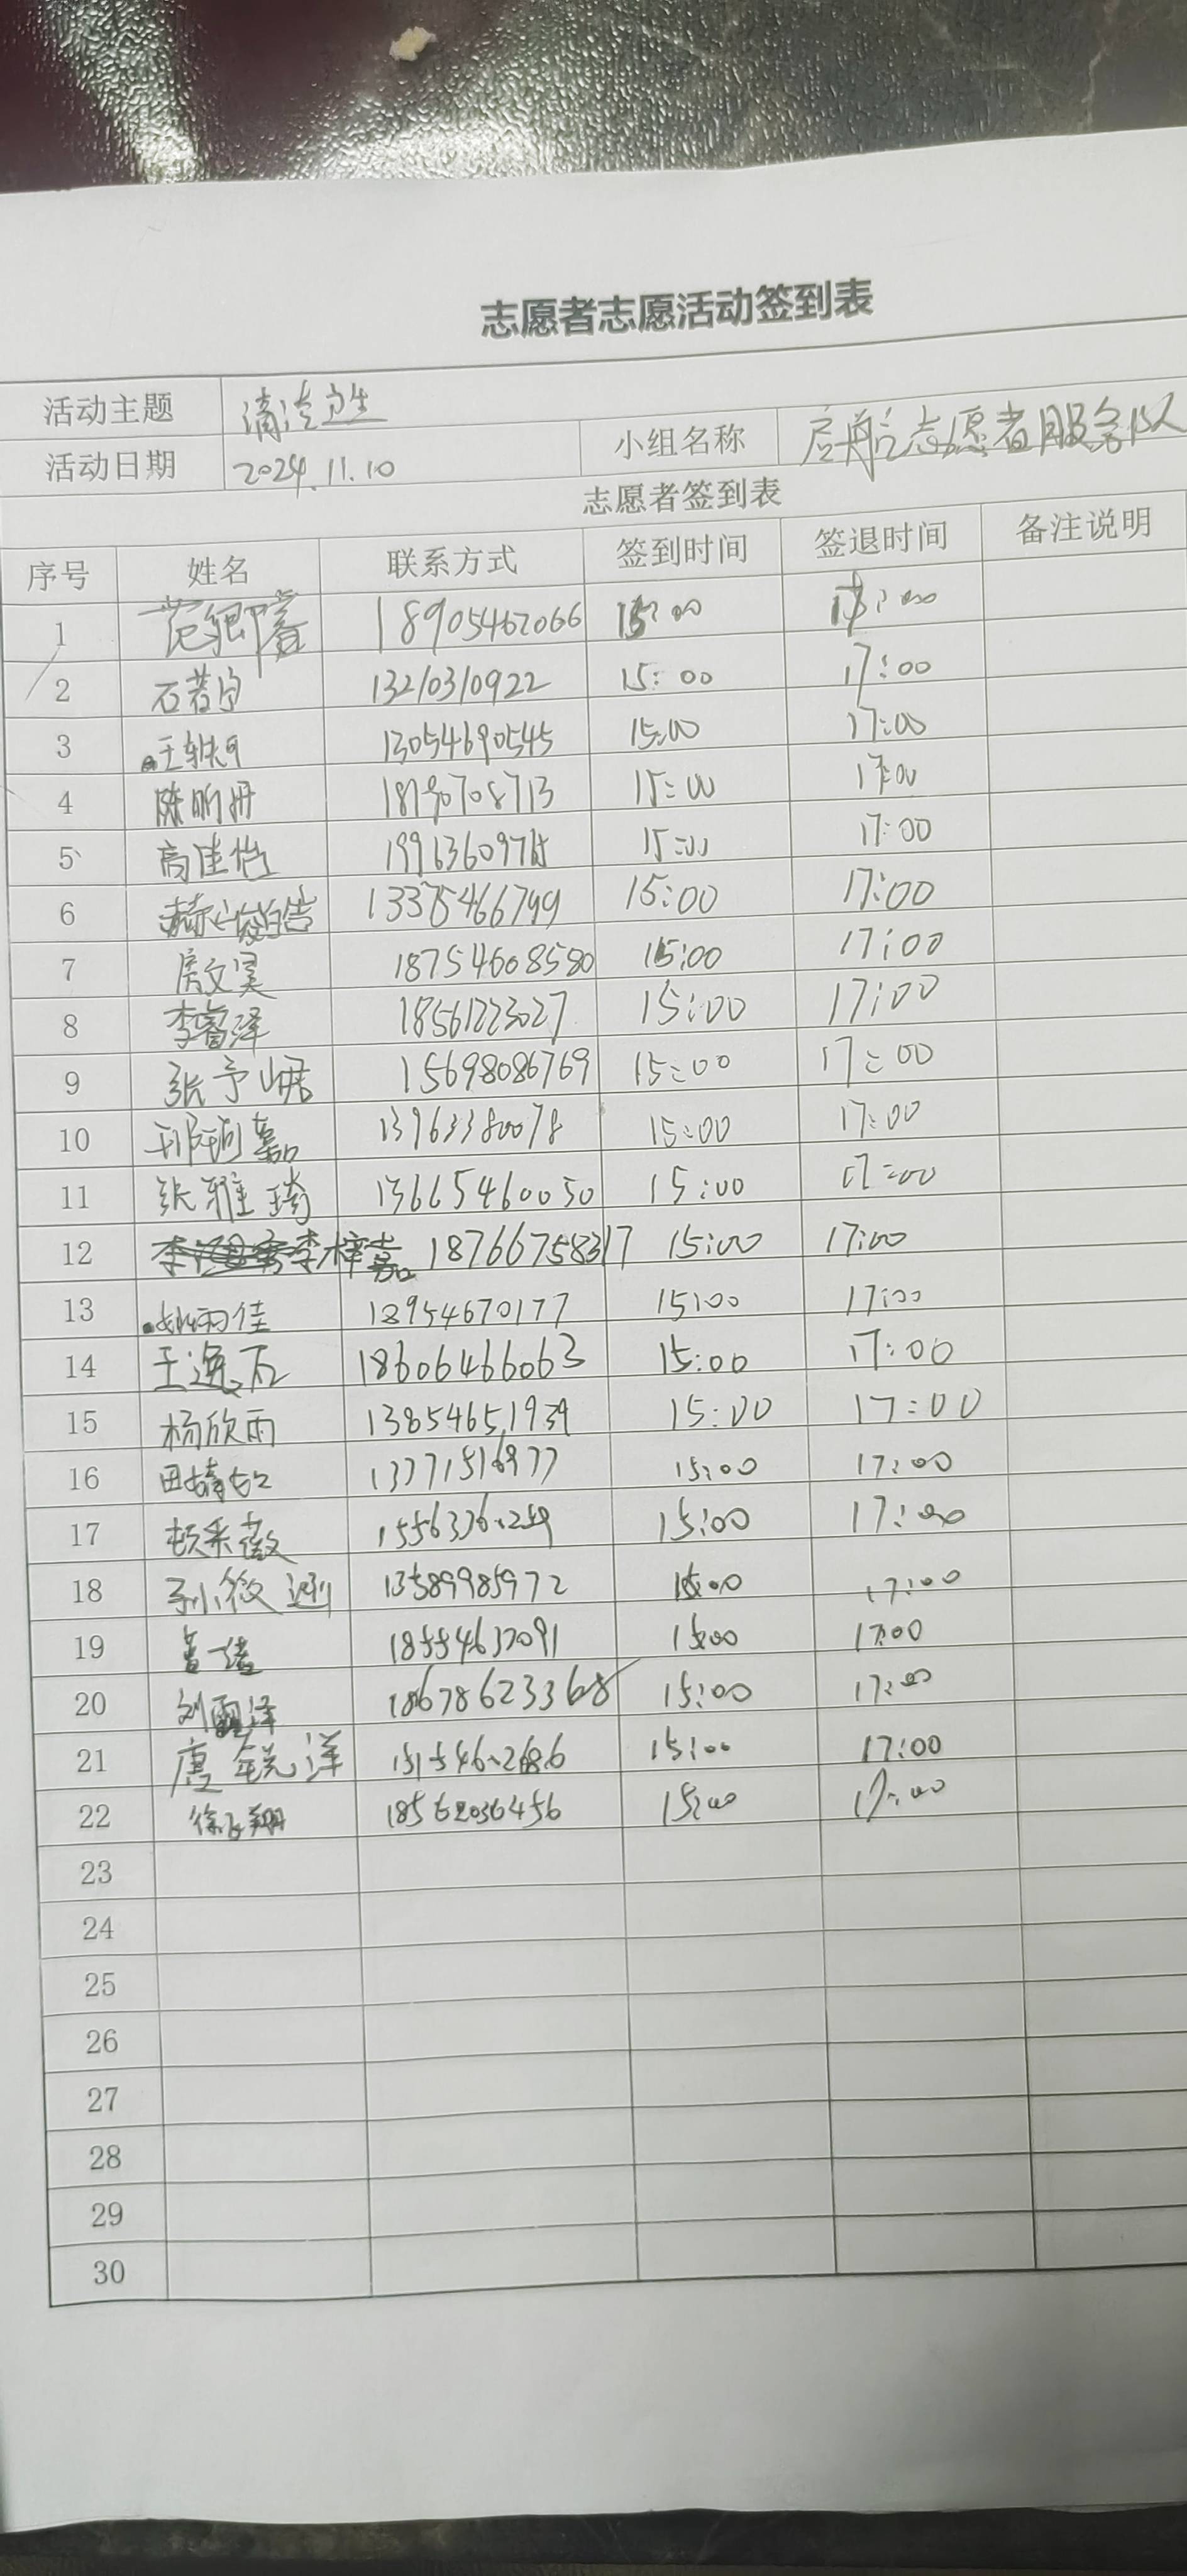 志愿者志愿活动签到表
活动主题 清洁卫生
活动日期 2024.11.10 小组名称 启航志愿者服务队
志愿者签到表
序号 姓名 联系方式 签到时间 签退时间 备注说明
1 18905462066 15:00
2 石若宁 13210310922 15:00 17:00
3 13054690545 15:00 17:00
4 陈昕妍 15:00 17:00
5 高佳怡 15:00 17:00
6 13375466799 15:00 17:00
7 18754608580 15:00 17:00
8 李睿泽 18561223027 15:00 17:00
9 张予 15698086769 15:00 17:00
10 13963380078 15:00 17:00
11 张雅琦 13665460050 15:00 17:00
12 李梓嘉 18766758317 15:00 17:00
13 姚雨佳 18954670177 15:00 17:00
14 18606466063 15:00 17:00
15 杨欣雨 13854651939 15:00 17:00
16 15:00 17:00
17 15:00 17:00
18 13589985972 15:00 17:00
19 18554637091 15:00 17:00
20 18678623368 15:00 17:00
21 唐锐洋 15:00 17:00
22 徐飞翔 18562036456 15:00 17:00
23
24
25
26
27
28
29
30